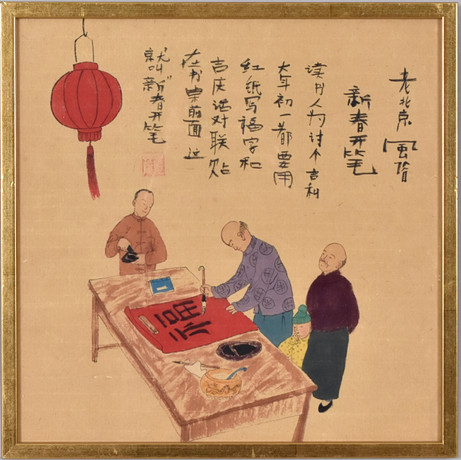 老北京風俗
新春开笔
读书人为讨个吉利
大年初一都要用
红纸写福字和
吉庆对联贴
在书前面这
就叫新春开笔
福